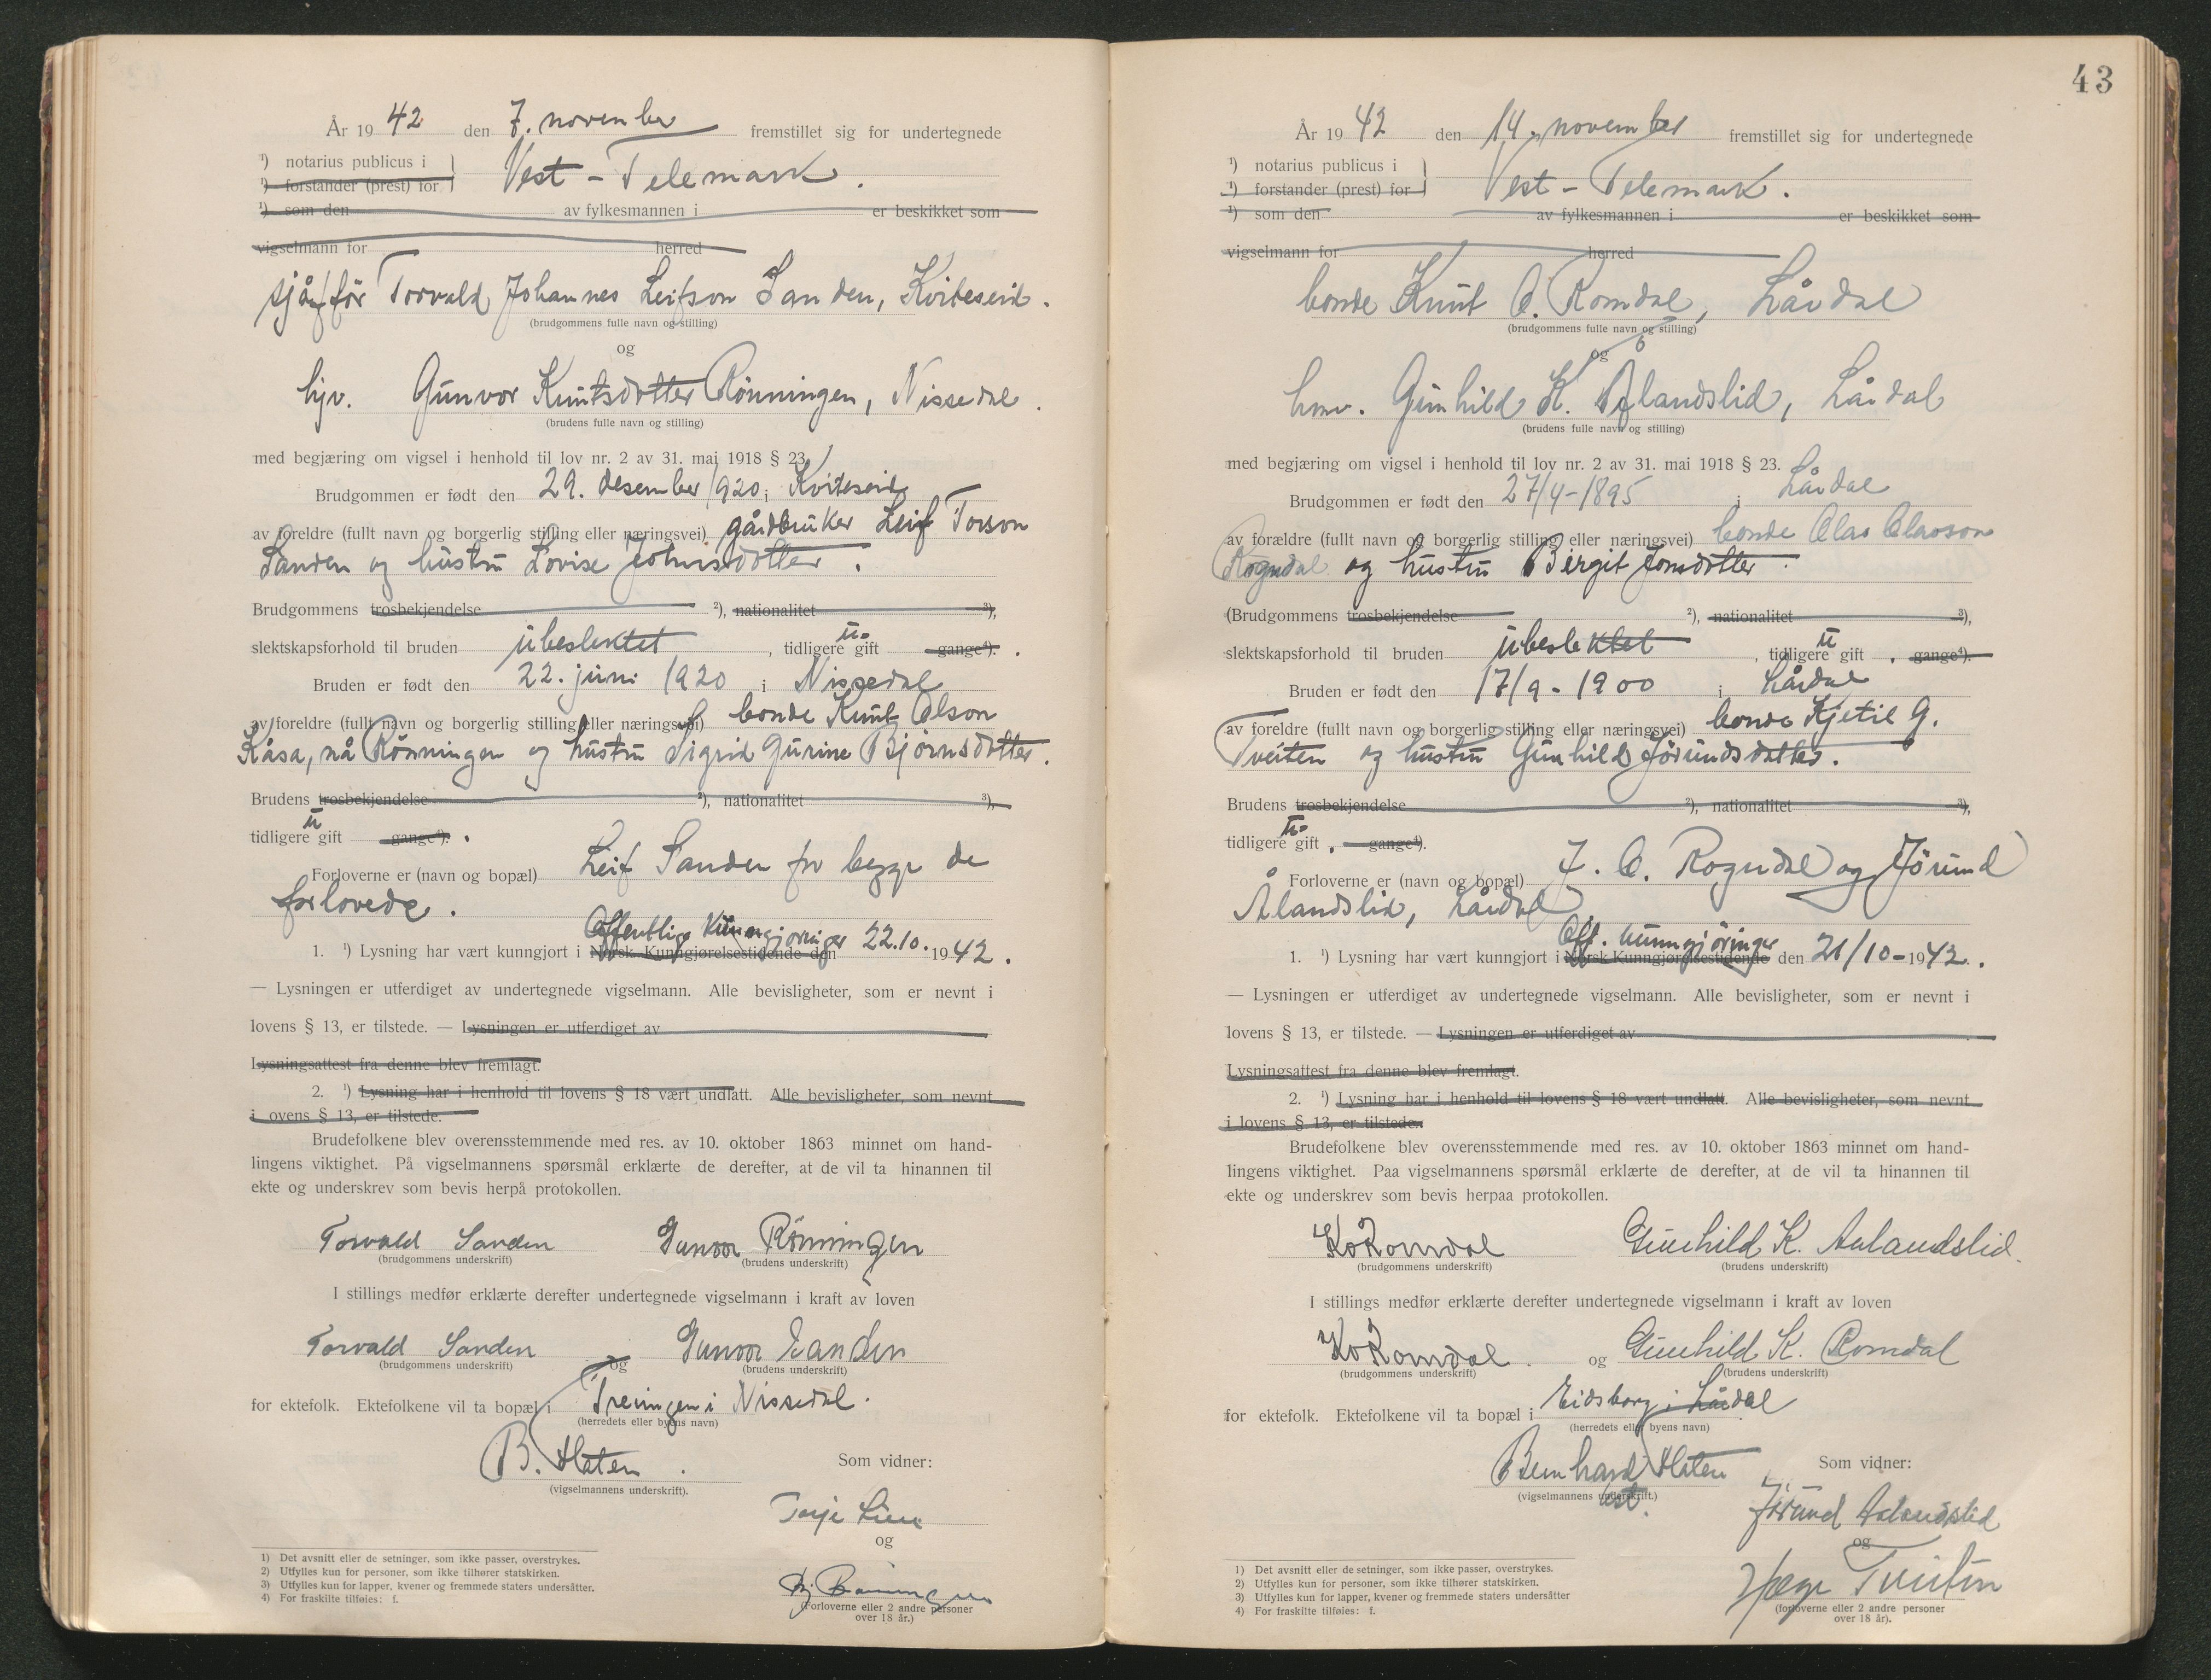 År 19 42 den 7. november fremstillet sig for undertegnede
¹) notarius publicus i
¹) forstander (prest) for Vest-Telemark.
¹) som den av fylkesmannen i er beskikket som
vigselmann for herred
sjåfför Torvald Johannes Leifson Sanden, Kviteseid.
(brudgommens fulle navn og stilling)
og
hjv. Gunvor Knutsdotter Rönningen, Nissedal.
(brudens fulle navn og stilling)
med begjæring om vigsel i henhold til lov nr. 2 av 31. mai 1918 § 23.
Brudgommen er født den 29. desember 1920 i Kviteseid
av foreldre (fullt navn og borgerlig stilling eller næringsvei) gårdbruker Leif Torson
Sanden og hustru Lovise Johnsdotter.
Brudgommens trosbekjendelse ²), nationalitet ³),
slektskapsforhold til bruden ubeslektet, tidligere u. gift gange⁴).
Bruden er født den 22. juni 1920 i Nissedal
av foreldre (fullt navn og borgerlig stilling eller næringsvei) bonde Knut Olson
Kåsa, nå Rönningen og hustru Sigrid Gurine Björnsdotter.
Brudens trosbekjendelse ²), nationalitet ³),
tidligere u gift gange⁴).
Forloverne er (navn og bopæl) Leif Sanden for begge de
forlovede.
Offentlige kunngjöringer
1. ¹) Lysning har vært kunngjort i Norsk Kunngjørelsestidende den 22.10.1942.
— Lysningen er utferdiget av undertegnede vigselmann. Alle bevisligheter, som er nevnt i
lovens § 13, er tilstede. — Lysningen er utferdiget av
Lysningsattest fra denne blev fremlagt.
2. ¹) Lysning har i henhold til lovens § 18 vært undlatt. Alle bevisligheter, som nevnt
i ovens § 13, er tilstede.
Brudefolkene blev overensstemmende med res. av 10. oktober 1863 minnet om hand-
lingens viktighet. På vigselmannens spørsmål erklærte de derefter, at de vil ta hinannen til
ekte og underskrev som bevis herpå protokollen.
Torvald Sanden Gunvor Rönningen
(brudgommens underskrift) (brudens underskrift)
I stillings medfør erklærte derefter undertegnede vigselmann i kraft av loven
Torvald Sanden og Gunvor Sanden
(brudgommens underskrift) (brudens underskrift)
for ektefolk. Ektefolkene vil ta bopæl i Treungen i Nissedal.
(herredets eller byens navn)
B. Haten. Som vidner:
(vigselmannens underskrift).
Torje Lien
og
(Forloverne eller 2 andre personer
over 18 år.)
1) Det avsnitt eller de setninger, som ikke passer, overstrykes.
2) Utfylles kun for personer, som ikke tilhører statskirken.
3) Utfylles kun for lapper, kvener og fremmede staters undersåtter.
4) For fraskilte tilføies: f.
43
År 19 42 den 14. november fremstillet sig for undertegnede
¹) notarius publicus i
¹) forstander (prest) for Vest-Telemark.
¹) som den av fylkesmannen i er beskikket som
vigselmann for herred
bonde Knut O. Romdal, Lårdal
(brudgommens fulle navn og stilling)
og
hmv. Gunhild K. Ålandslid, Lårdal
(brudens fulle navn og stilling)
med begjæring om vigsel i henhold til lov nr. 2 av 31. mai 1918 § 23.
Brudgommen er født den 27/4-1895 i Lårdal
av forældre (fullt navn og borgerlig stilling eller næringsvei) bonde Olav Olavson
Rogndal og hustru Birgit Jonsdotter.
(Brudgommens trosbekjendelse ²), nationalitet ³),
slektskapsforhold til bruden ubeslektet, tidligere u gift. gange⁴).
Bruden er født den 17/9-1900 i Lårdal
av foreldre (fullt navn og borgerlig stilling eller næringsvei) bonde Kjetil G.
Tveiten og hustru Gunhild Jörundsdatter.
Brudens trosbekjendelse ²), nationalitet ³),
tidligere u. gift. gange⁴).
Forloverne er (navn og bopæl) J. O. Rogndal og Jörund
Ålandslid, Lårdal
Off. kunngjöringer
1. ¹) Lysning har vært kunngjort i Norsk Kunngjørelsestidende den 21/10-1942.
— Lysningen er utferdiget av undertegnede vigselmann. Alle bevisligheter, som er nevnt i
lovens § 13, er tilstede. — Lysningen er utferdiget av
Lysningsattest fra denne blev fremlagt.
2. ¹) Lysning har i henhold til lovens § 18 vært undlatt. Alle bevisligheter, som nevnt
i lovens § 13, er tilstede.
Brudefolkene blev overensstemmende med res. av 10. oktober 1863 minnet om hand-
lingens viktighet. Paa vigselmannens spørsmål erklærte de derefter, at de vil ta hinannen til
ekte og underskrev som bevis herpaa protokollen.
K O Romdal Gunhild K. Aalandslid.
(brudgommens underskrift) (brudens underskrift)
I stillings medfør erklærte derefter undertegnede vigselmann i kraft av loven
K O Romdal. og Gunhild K. Romdal
(brudgommens underskrift) (brudens underskrift)
for ektefolk. Ektefolkene vil ta bopæl i Eidsborg i Lårdal
(herredets eller byens navn)
Bernhard Haten Som vidner:
(vigselmannens underskrift.)
Jørund Aalandslid
og
Hæge Tveiten
(forloverne eller 2 andre personer
over 18 år).
1) Det avsnitt eller de setninger, som ikke passer, overstrykes.
2) Utfylles kun for personer, som ikke tilhører statskirken.
3) Utfylles kun for lapper, kvener og fremmede staters undersåtter
4) For fraskilte tilføies: f.